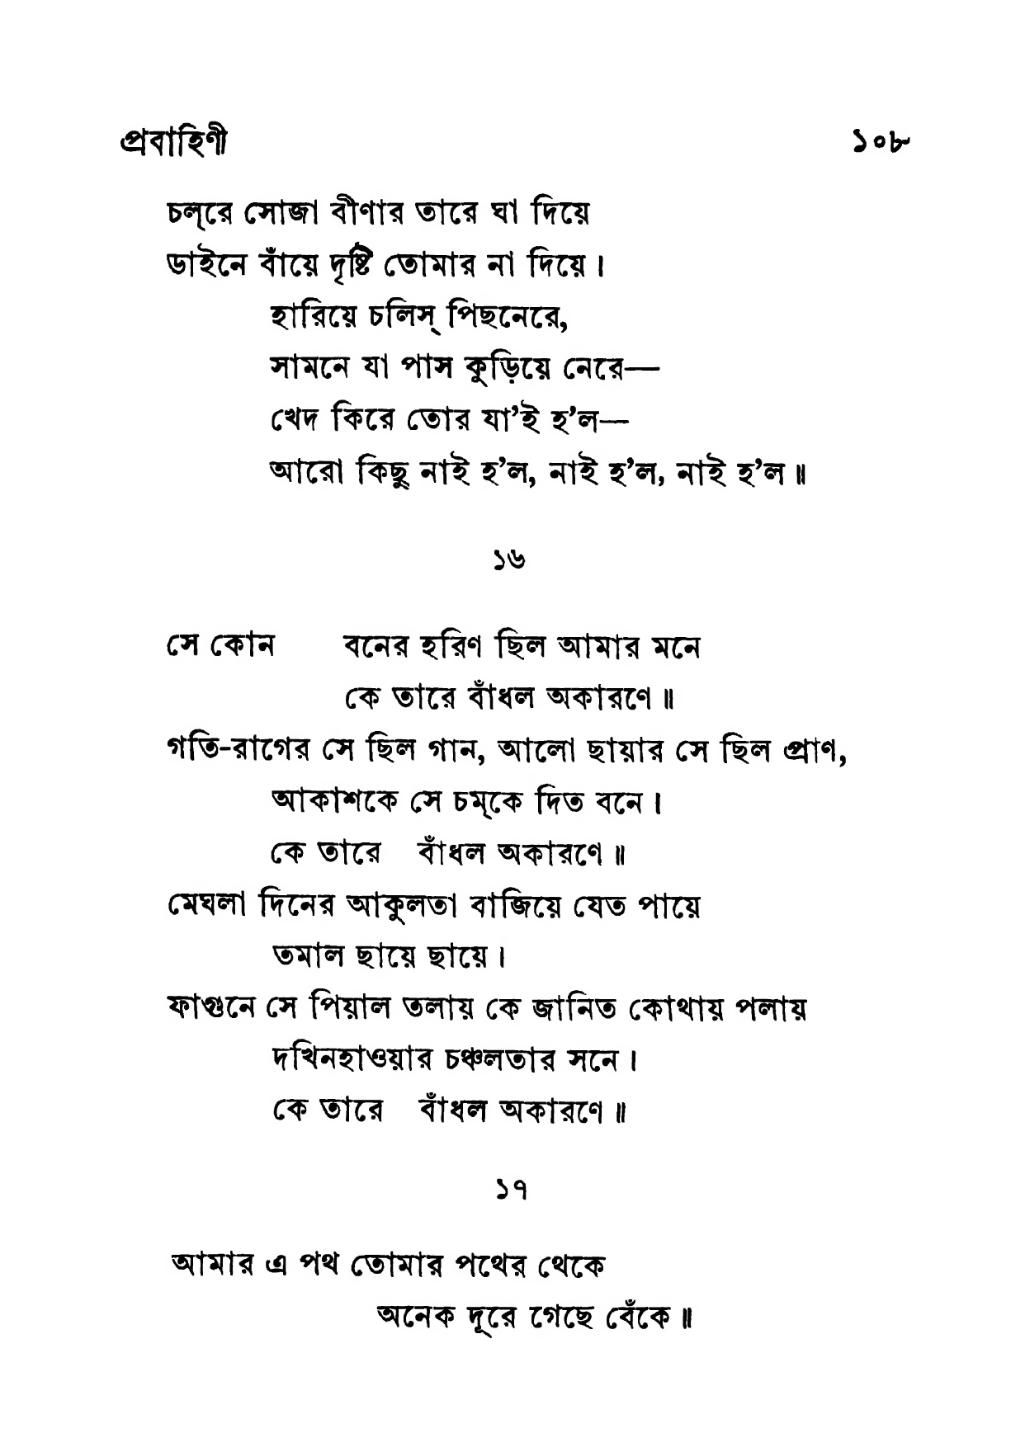 প্রবাহিণী ১০৮
চল্‌রে সোজা বীণার তারে ঘা দিয়ে
ডাইনে বাঁয়ে দৃষ্টি তোমার না দিয়ে।
হারিয়ে চলিস্ পিছনেরে,
সামনে যা পাস কুড়িয়ে নেরে—
খেদ কিরে তোর যা’ই হ’ল—
আরো কিছু নাই হ’ল, নাই হ’ল, নাই হ’ল॥
১৬
সে কোন বনের হরিণ ছিল আমার মনে
কে তারে বাঁধল অকারণে॥
গতি-রাগের সে ছিল গান, আলো ছায়ার সে ছিল প্রাণ,
আকাশকে সে চম্‌কে দিত বনে।
কে তারে বাঁধল অকারণে॥
মেঘলা দিনের আকুলতা বাজিয়ে যেত পায়ে
তমাল ছায়ে ছায়ে।
ফাগুনে সে পিয়াল তলায় কে জানিত কোথায় পলায়
দখিনহাওয়ার চঞ্চলতার সনে।
কে তারে বাঁধল অকারণে॥
১৭
আমার এ পথ তোমার পথের থেকে
অনেক দূরে গেছে বেঁকে॥